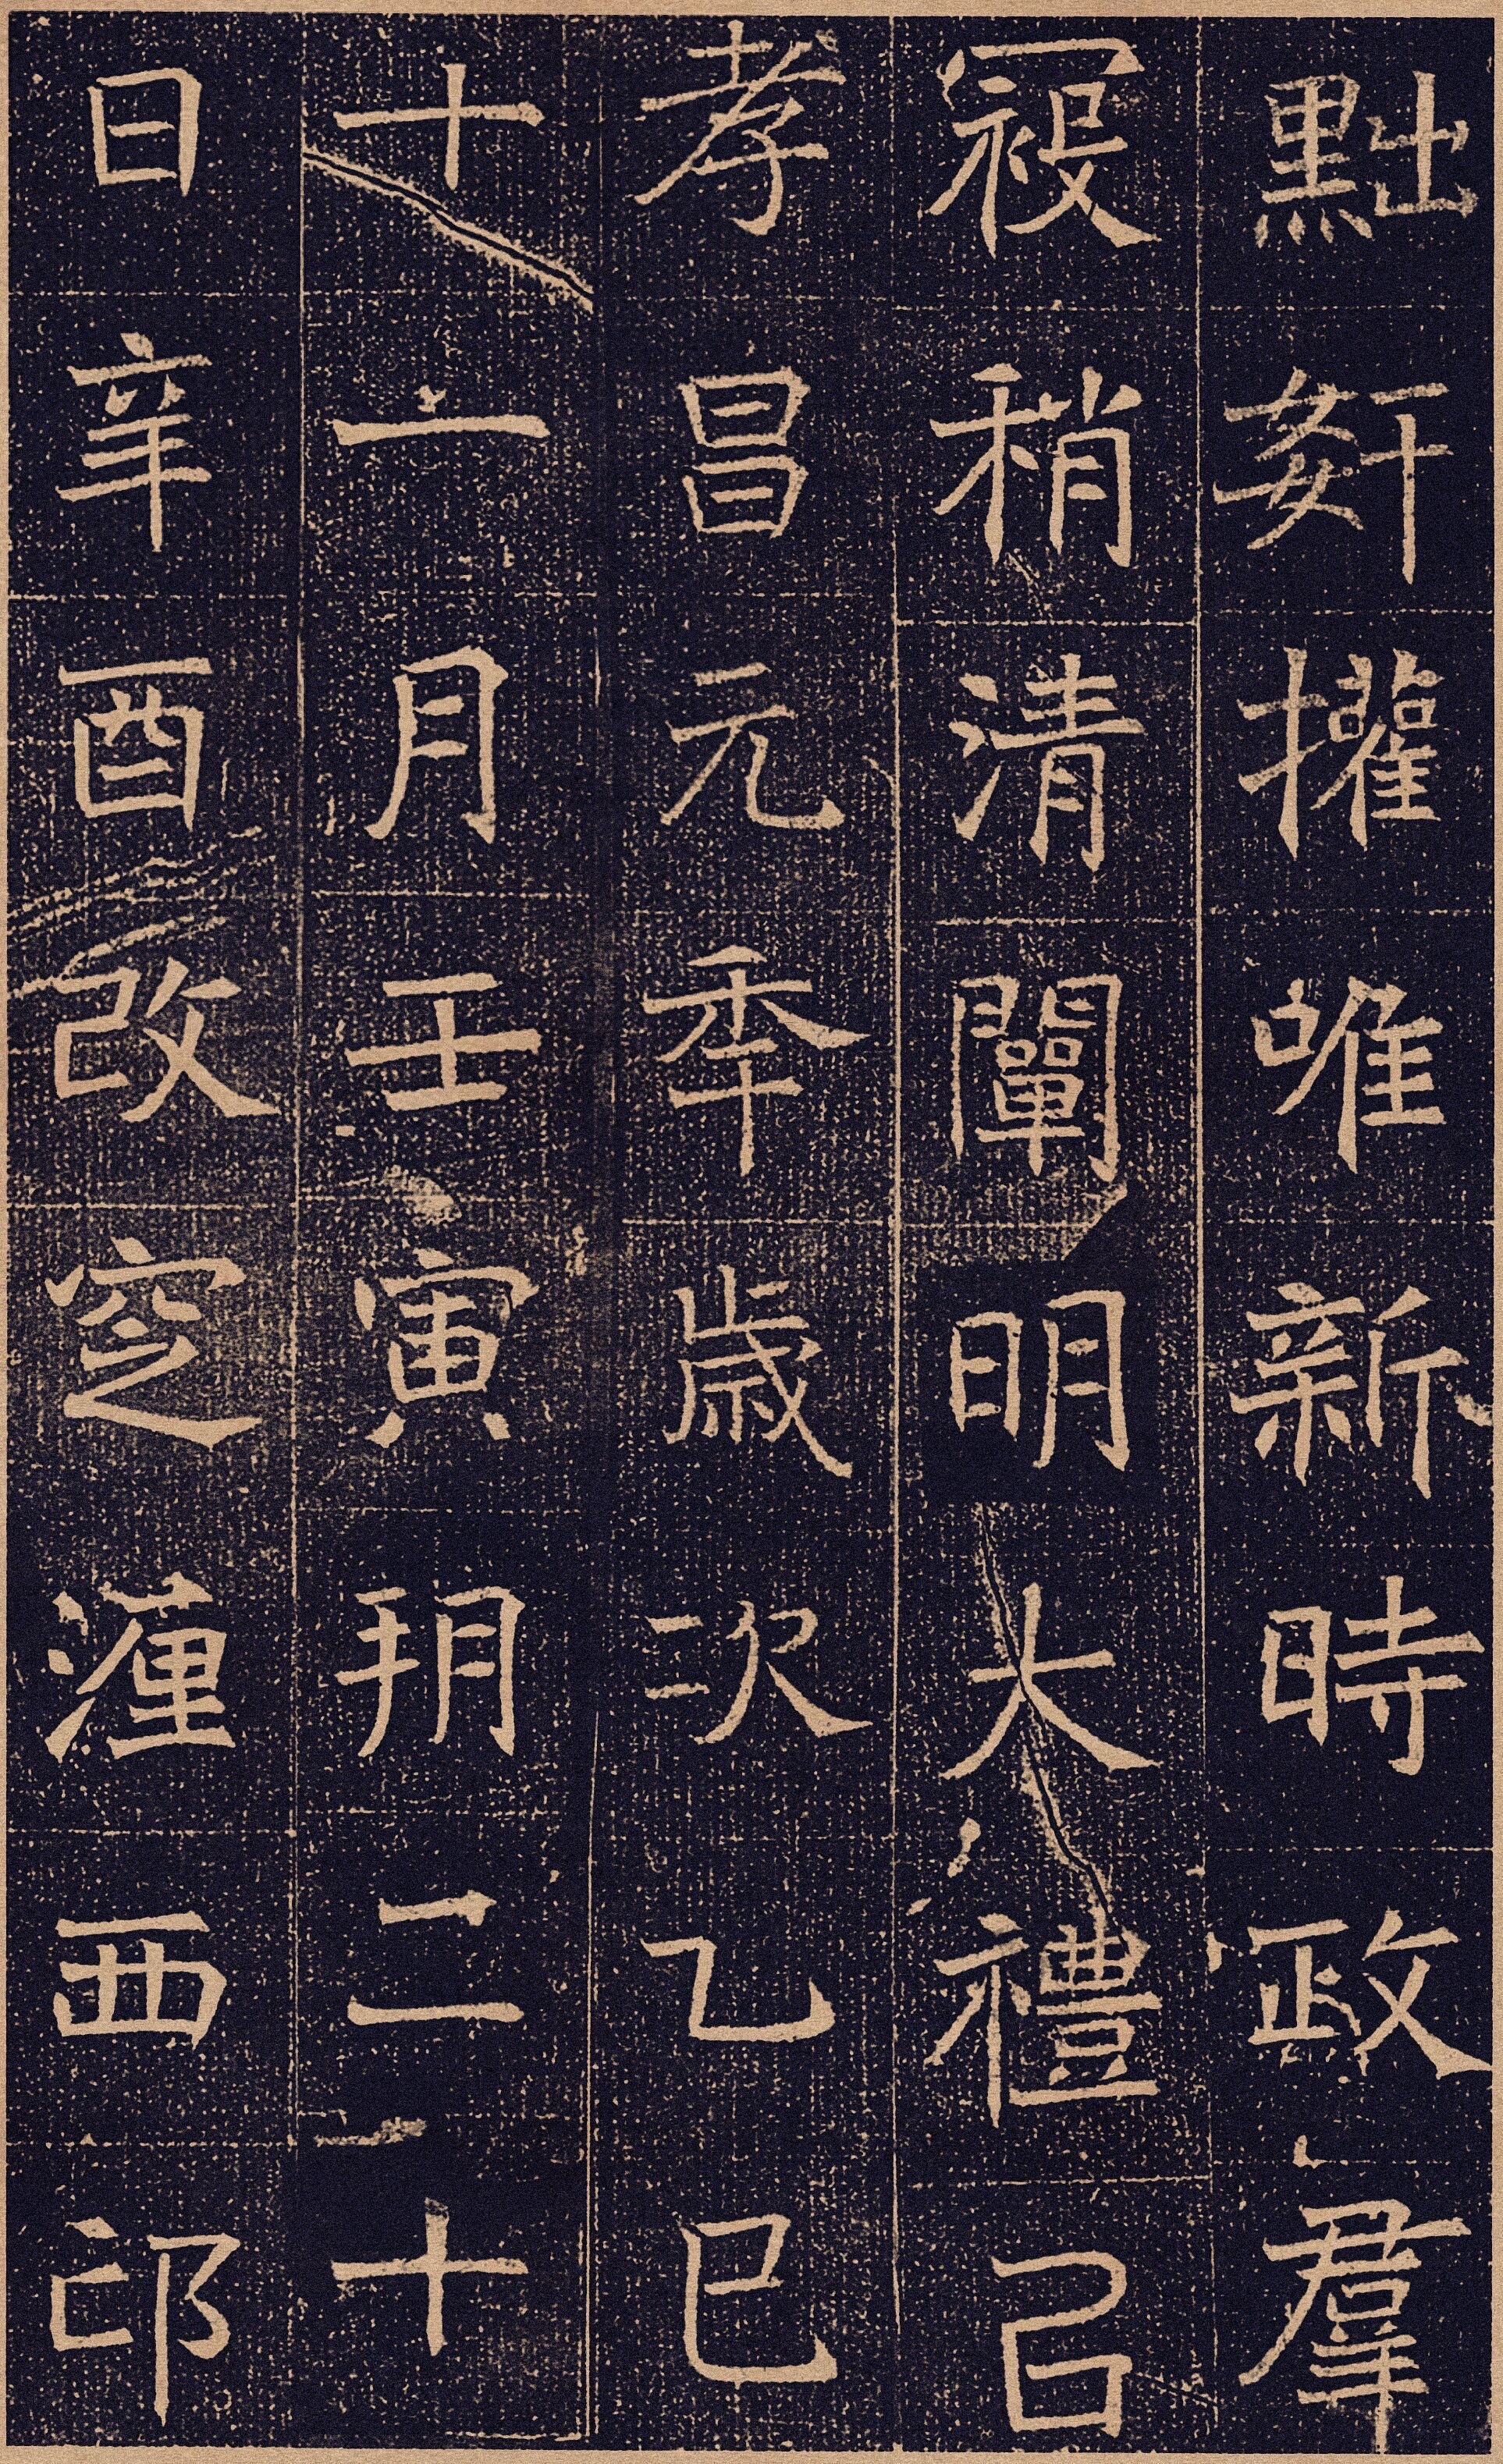 黜姧擢唯新時政羣
祲稍清闡明大禮以
孝昌元秊歲次乙巳
十一月壬寅玥二十
日辛酉改空瀍西邙